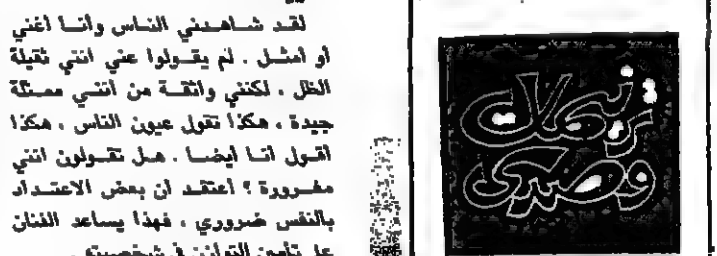 لقد شاهدني الناس وأنا أغني
أو أمثل . لم يقولوا عني انني ثقيلة
الظل ، لكنني واثقة من انني ممثلة
جيدة ، هكذا تقول عيون الناس ، هكذا
أقول انا أيضا . هل تقولون انني
مغرورة ؟ أعتقد ان بعض الاعتداد
بالنفس ضروري ، فهذا يساعد الفنان
على تأمين التوازن في شخصيته .
وصدى